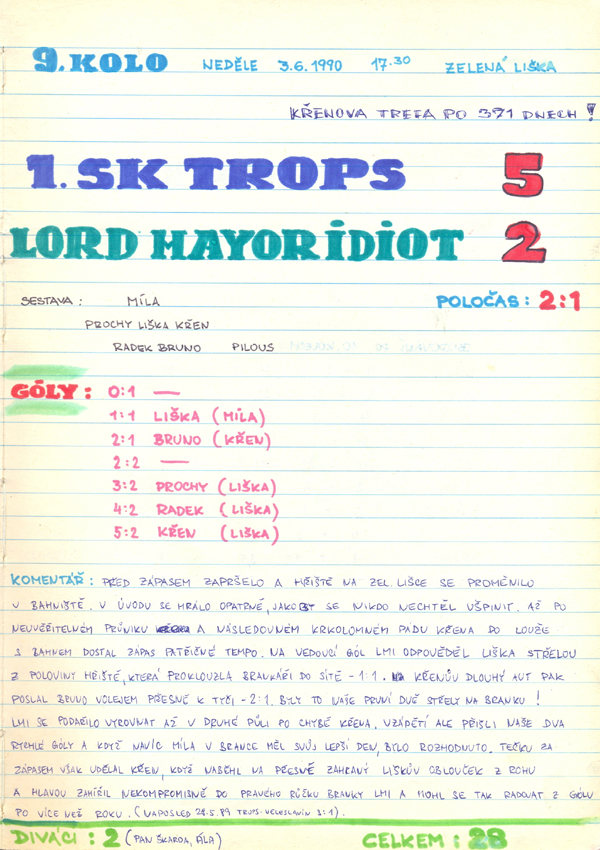 9. KOLO NEDĚLE 3.6.1990 17.30 ZELENÁ LIŠKA
KŘENOVA TREFA PO 371 DNECH!
1. SK TROPS 5
LORD MAYOR IDIOT 2
SESTAVA: MÍLA POLOČAS: 2:1
PROCHY LIŠKA KŘEN
RADEK BRUNO PILOUS
GÓLY: 0:1 —
1:1 LIŠKA (MÍLA)
2:1 BRUNO (KŘEN)
2:2 —
3:2 PROCHY (LIŠKA)
4:2 RADEK (LIŠKA)
5:2 KŘEN (LIŠKA)
KOMENTÁŘ: PŘED ZÁPASEM ZAPRŠELO A HŘIŠTĚ NA ZEL. LIŠCE SE PROMĚNILO
V BAHNIŠTĚ. V ÚVODU SE HRÁLO OPATRNĚ, JAKOBY SE NIKDO NECHTĚL UŠPINIT. AŽ PO
NEUVĚŘITELNÉM PRŮNIKU A NÁSLEDOVNÉM KRKOLOMNÉM PÁDU KŘENA DO LOUŽE
S BAHNEM DOSTAL ZÁPAS PATŘIČNÉ TEMPO. NA VEDOUCÍ GÓL LMI ODPOVĚDĚL LIŠKA STŘELOU
Z POLOVINY HŘIŠTĚ, KTERÁ PROKLOUZLA BRANKÁŘI DO SÍTĚ - 1:1. KŘENŮV DLOUHÝ AUT PAK
POSLAL BRUNO VOLEJEM PŘESNĚ K TYČI - 2:1. BYLY TO NAŠE PRVNÍ DVĚ STŘELY NA BRANKU!
LMI SE PODAŘILO VYROVNAT AŽ V DRUHÉ PŮLI PO CHYBĚ KŘENA. VZÁPĚTÍ ALE PŘIŠLI NAŠE DVA
RYCHLÉ GÓLY A KDYŽ NAVÍC MÍLA V BRANCE MĚL SVŮJ LEPŠÍ DEN, BYLO ROZHODNUTO. TEČKU ZA
ZÁPASEM VŠAK UDĚLAL KŘEN, KDYŽ NABĚHL NA PŘESNĚ ZAHRANÝ LIŠKŮV OBLOUČEK Z ROHU
A HLAVOU ZAMÍŘIL NEKOMPROMISNĚ DO PRAVÉHO RŮŽKU BRANKY LMI A MOHL SE TAK RADOVAT Z GÓLU
PO VÍCE NEŽ ROKU. (NAPOSLED 28.5.89 TROPS-VELESLAVÍN 3:1).
DIVÁCI: 2 (PAN ŠKARDA, ÁLA) CELKEM: 28